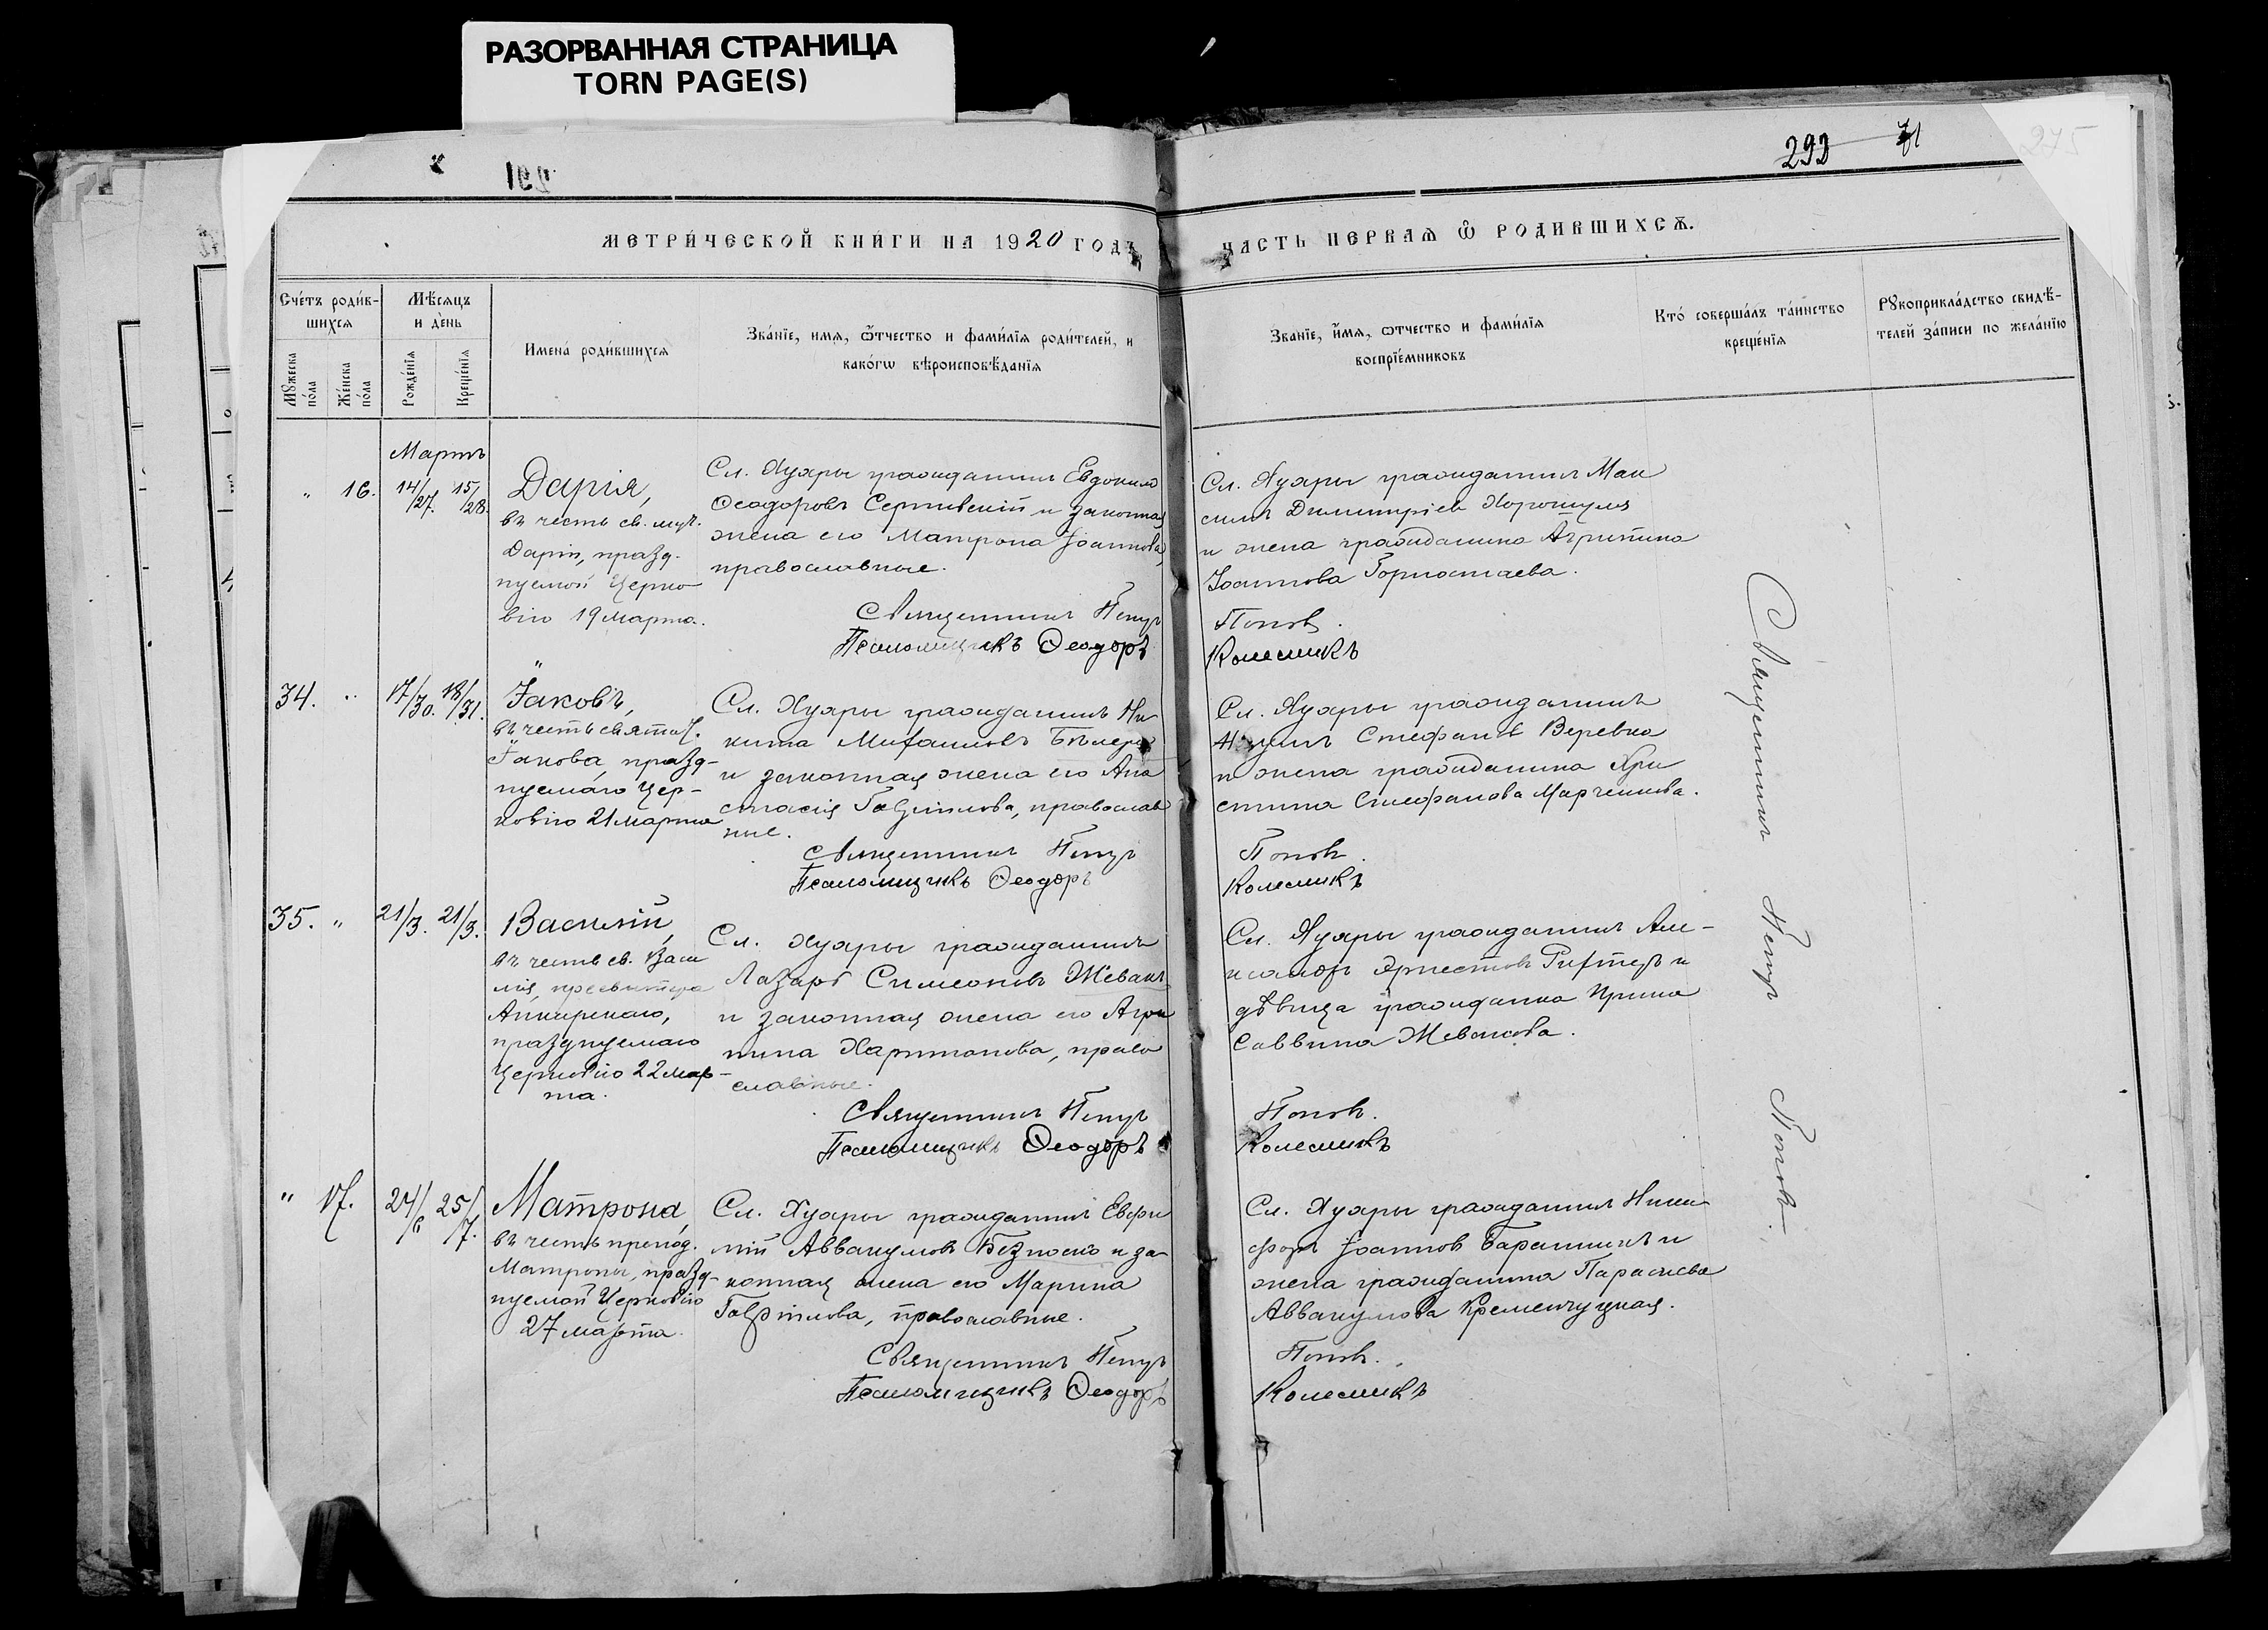 РАЗОРВАННАЯ СТРАНИЦА
TORN PAGE(S)
291
292 71
275
МЕТРИ́ЧЕСКОЙ КНИ́ГИ НА 1920 ГОДЪ
ЧАСТЬ ПЕРВАѦ Ѿ РОДИВШИХСѦ.
Сче́тъ роди́в-
шихсѧ
Мѣ́сѧцъ
и де́нь
Мꙋ́жеска
по́ла
Же́нска
по́ла
Рожде́нїѧ
Креще́нїѧ
Имена́ роди́вшихсѧ
Зва́нїе, имѧ, ѻ҆́тчество и фами́лїѧ роди́телей, и
како́гѡ вѣроисповѣ́данїѧ
Зва́нїе, и҆́мѧ, ѻтчество и фами́лїѧ
воспрїе́мниковъ
Кто̀ соверша́лъ та́инство
креще́нїѧ
Рꙋкоприкла́дство свидѣ́-
телей за́писи по жела́нїю
Мартъ
" 16. 14/27. 15/28.
Дарія,
въ честь св. муч.
Даріи, празд-
нуемой Церко
вію 19 марта.
Сл. Хуторы гражданинъ Евдокимъ
Ѳеодоровъ и законная
жена его Матрона Іоаннова,
православные.
Священникъ Петръ
Псаломщикъ Ѳеодоръ
Сл. Хуторы гражданинъ Мак
симъ Димитріев
и жена гражданина Агрипина
Іоаннова Горностаева.
Поповъ.
Колесникъ
34. " 17/30. 18/31.
Іаковъ,
въ честь святаг.
Іакова, празд-
нуемаго Цер-
ковію 21 марта
Сл. Хуторы гражданинъ Ни
кита Михаиловъ
и законная жена его Ана
стасія Гавріилова, православ
ные.
Священникъ Петръ
Псаломщикъ Ѳеодоръ
Сл. Хуторы гражданинъ
Стефановъ Веревка
и жена гражданина Хри
стина Стефанова Марченкова.
Поповъ.
Колесникъ
35. " 21/3. 21/3.
Василій,
въ честь св. Васи
лія, пресвитера
Анкирскаго,
празднуемаго
Церковію 22 мар-
та.
Сл. Хуторы гражданинъ
Лазарь Симеоновъ Жевакъ
и законная жена его Агри
пина Харитонова, право
славные.
Священникъ Петръ
Псаломщикъ Ѳеодоръ
Сл. Хуторы гражданинъ Але-
ксандръ Эрнестовъ Рихтеръ и
дѣвица гражданка Ирина
Саввина Жевакова.
Поповъ.
Колесникъ
" 17. 24/6 25/7.
Матрона,
въ честь препод.
Матроны, празд-
нуемой Церковію
27 марта.
Сл. Хуторы гражданинъ Евфи
мій Аввакумовъ Безноско и за-
конная жена его Марина
Гавріилова, православные.
Священникъ Петръ
Псаломщикъ Ѳеодоръ
Сл. Хуторы гражданинъ Ники
форъ Іоанновъ Баранникъ и
жена гражданина Параскева
Аввакумова Кременчуцкая.
Поповъ.
Колесникъ
Священникъ Петръ Поповъ.